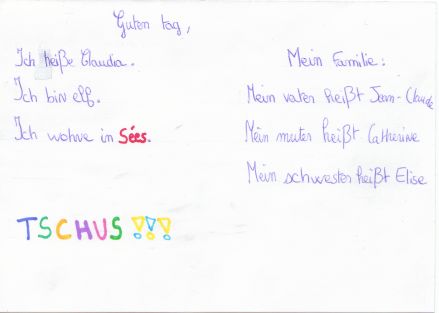 Guten tag,
Ich heiße Claudia.
Ich bin elf.
Ich wohne in Sées.
Mein Familie:
Mein vater heißt Jean-Claude
Mein muter heißt Catherine
Mein schwester heißt Elise
TSCHUS !!!